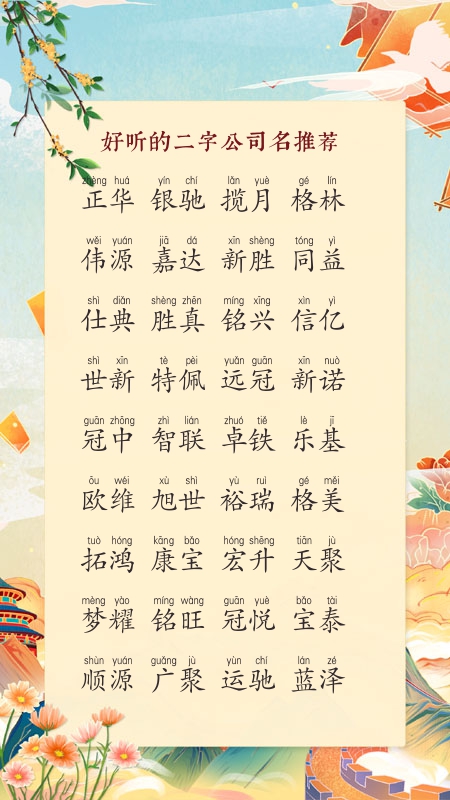 好听的二字公司名推荐
zhèng huá yín chí lǎn yuè gé lín
正华 银驰 揽月 格林
wěi yuán jiā dá xīn shèng tóng yì
伟源 嘉达 新胜 同益
shì diǎn shèng zhēn míng xīng xìn yì
仕典 胜真 铭兴 信亿
shì xīn tè pèi yuǎn guān xīn nuò
世新 特佩 远冠 新诺
guān zhōng zhì lián zhuó tiě lè jī
冠中 智联 卓铁 乐基
ōu wéi xù shì yù ruì gé měi
欧维 旭世 裕瑞 格美
tuò hóng kāng bǎo hóng shēng tiān jù
拓鸿 康宝 宏升 天聚
mèng yào míng wàng guān yuè bǎo tài
梦耀 铭旺 冠悦 宝泰
shùn yuán guǎng jù yùn chí lán zé
顺源 广聚 运驰 蓝泽